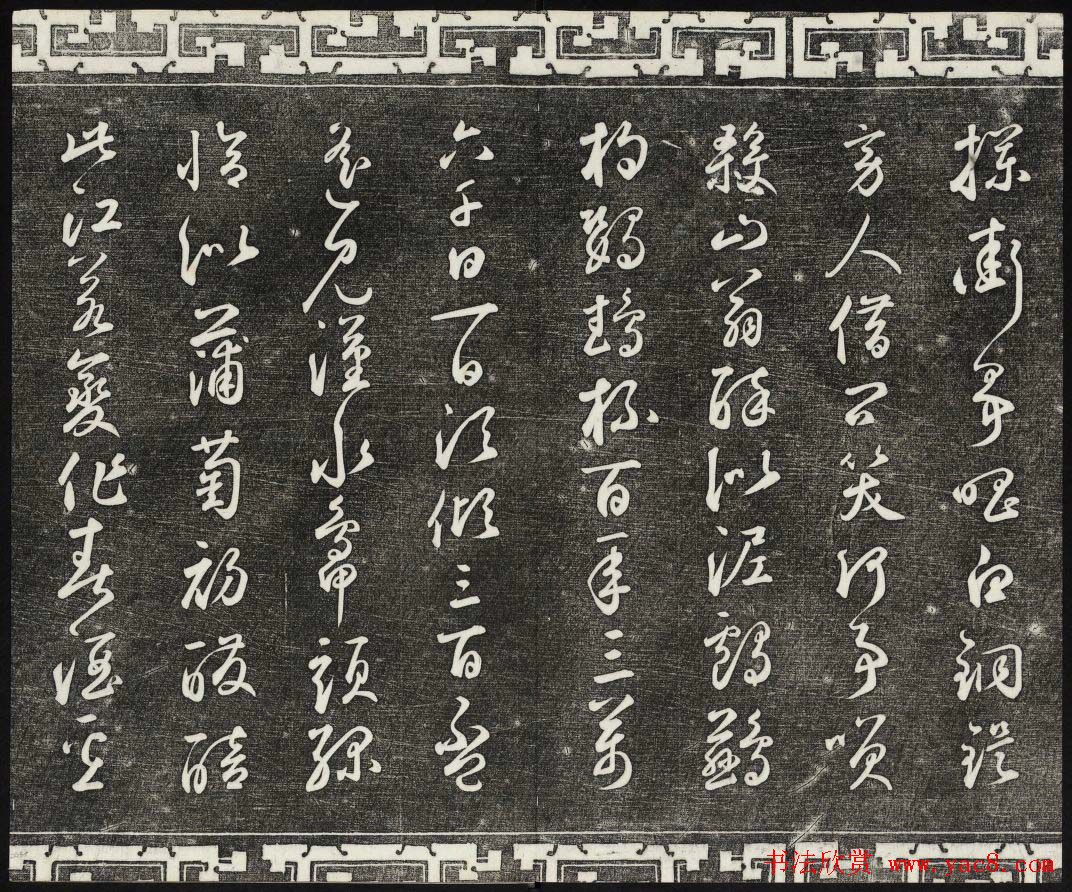 攔街爭唱白銅鍉
旁人借問笑何事咲
殺山翁醉似泥鸕鶿
杓鸚鵡杯百年三萬
六千日一日須傾三百盃
遥見漢水鴨頭綠
恰似蒲萄初醱醅
此江若變作春酒
书法欣赏 www.yac8.com